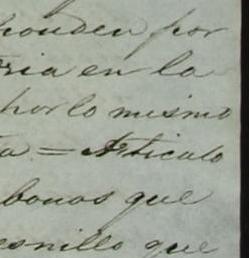 ponden por
ria en la
por lo mismo
a = Articulo
bonos que
esnillo que